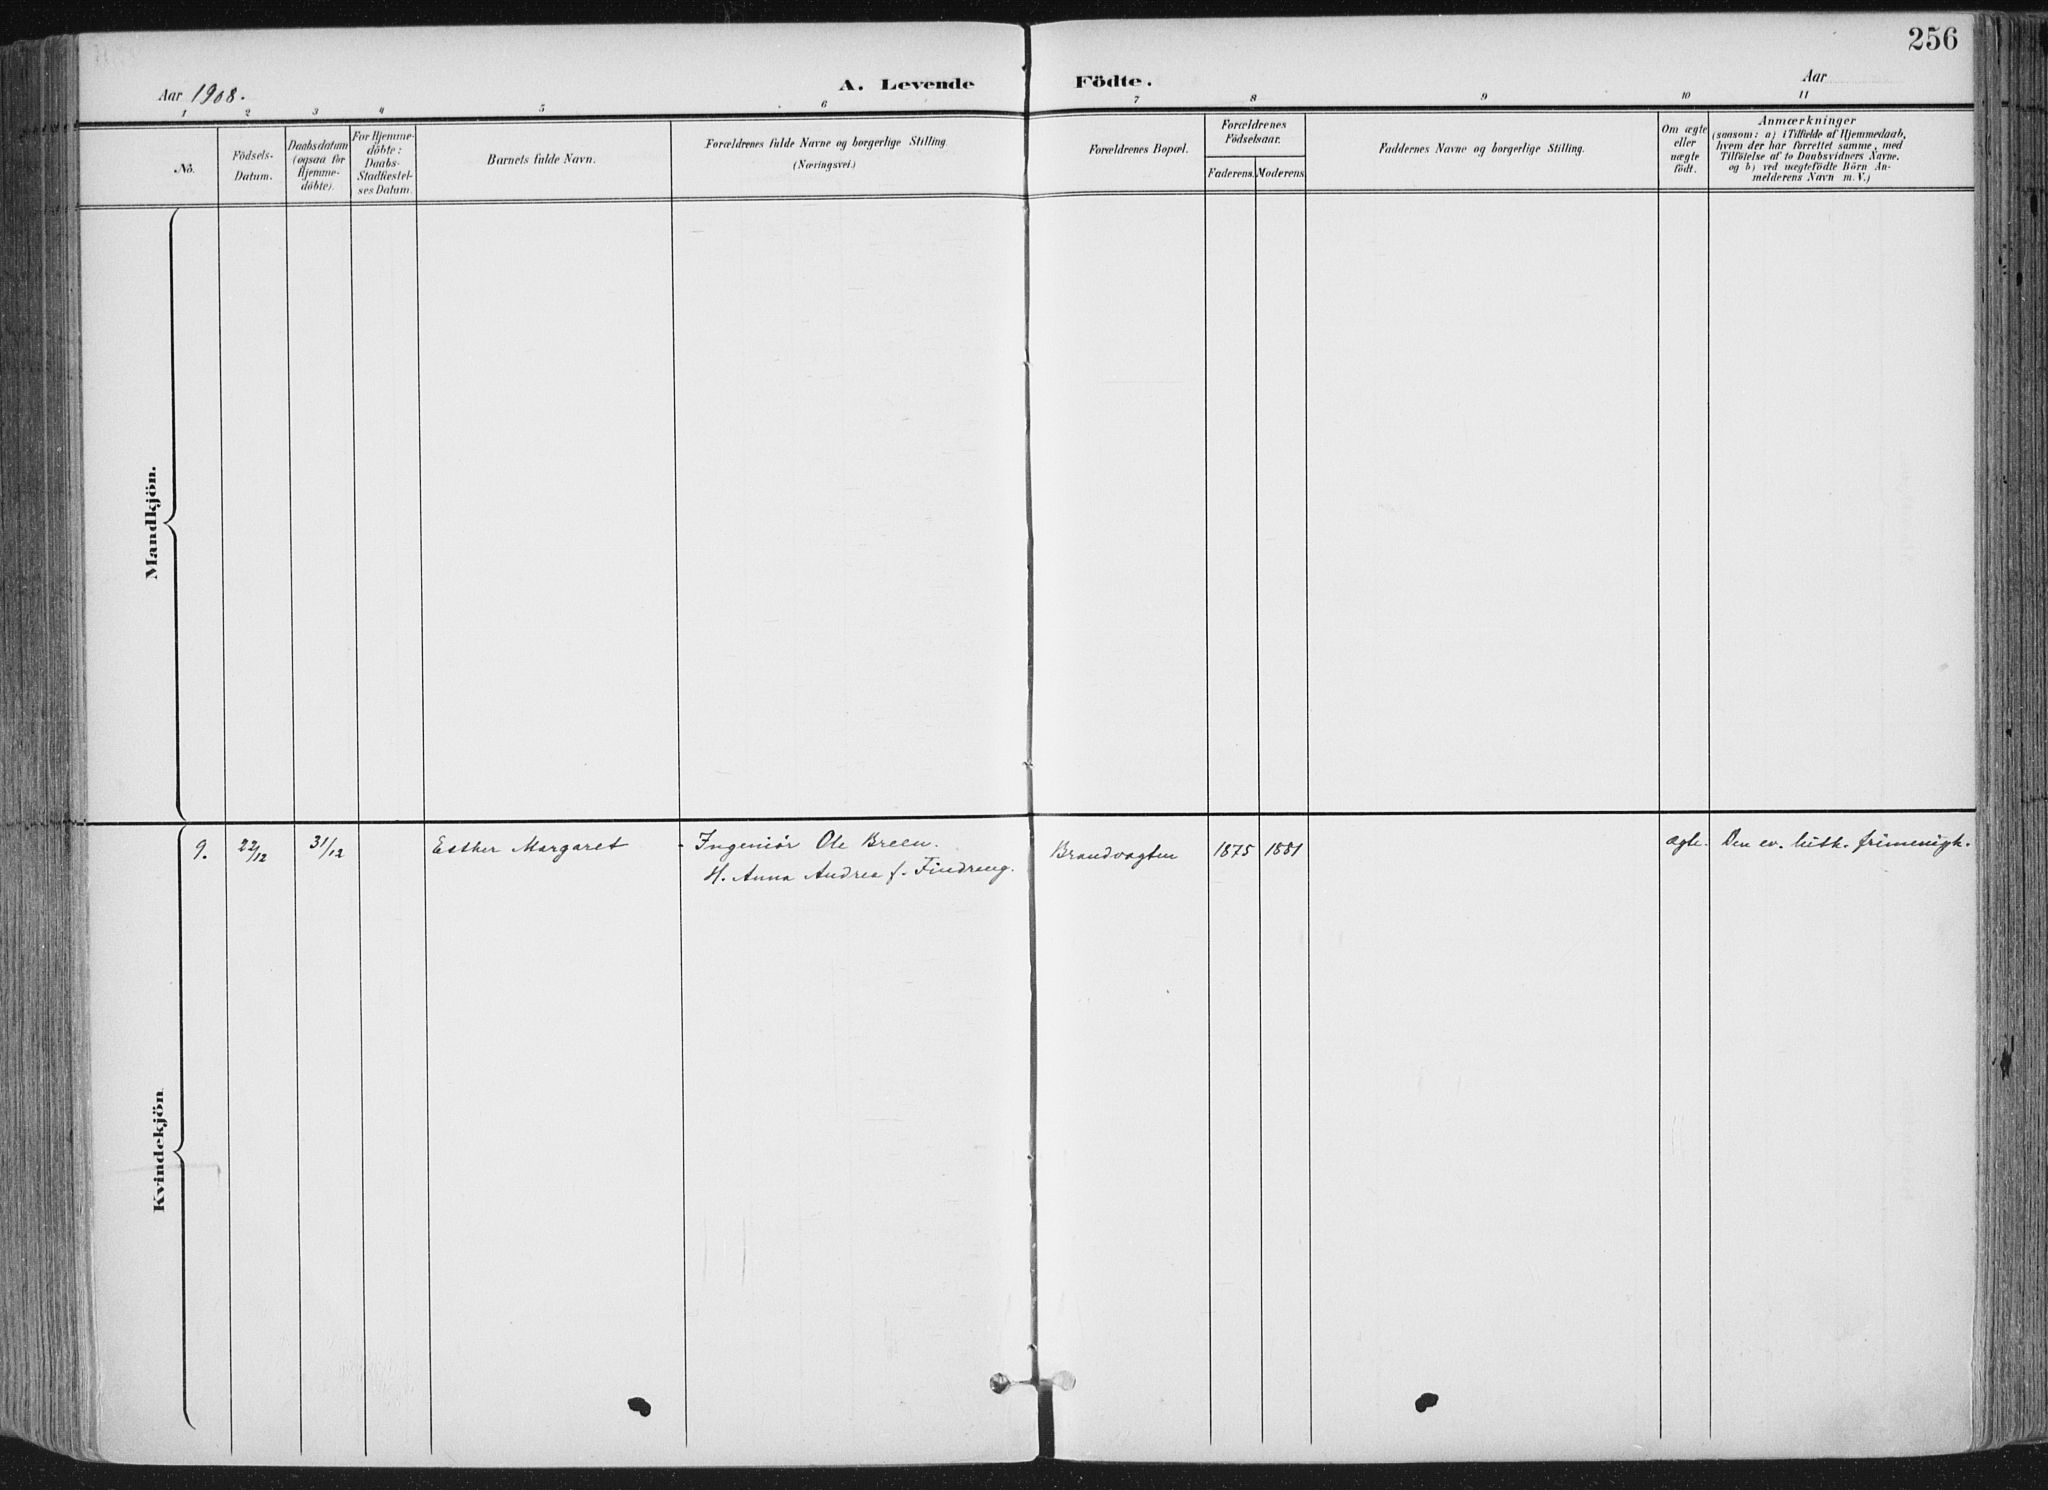 256
Aar 1908.
A. Levende Födte.
Aar
1 2 3 4 5 6 7 8 9 10 11
No.
Födsels-
Datum.
Daabsdatum
(ogsaa for
Hjemme-
döbte).
For Hjemme-
döbte:
Daabs-
Stadfæstel-
ses Datum.
Barnets fulde Navn.
Forældrenes fulde Navne og borgerlige Stilling
(Næringsvei.)
Forældrenes Bopæl.
Forældrenes
Födselsaar.
Faderens. Moderens.
Faddernes Navne og borgerlige Stilling.
Om ægte
eller
uægte
födt.
Anmærkninger
(saasom: a) i Tilfælde af Hjemmedaab,
hvem der har forrettet samme, med
Tilföielse af to Daabsvidners Navne,
og b) ved uægtefödte Börn An-
melderens Navn m. V.)
Mandkjön.
9. 22/12 31/12 Esther Margaret - Ingeniør Ole Breen. Brandvagten 1875 1881 ægte. Den ev. luth. frimenigh.
H. Anna Andrea f. Findreng.
Kvindekjön